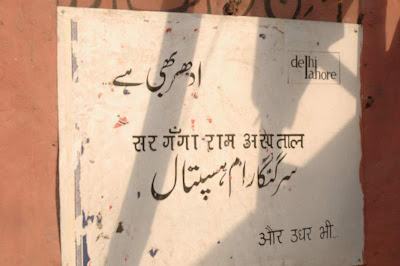 ادھر بھی ہے..
delhi
lahore
सर गँगा-राम अस्पताल
سر گنگا رام ہسپتال
और उधर भी..